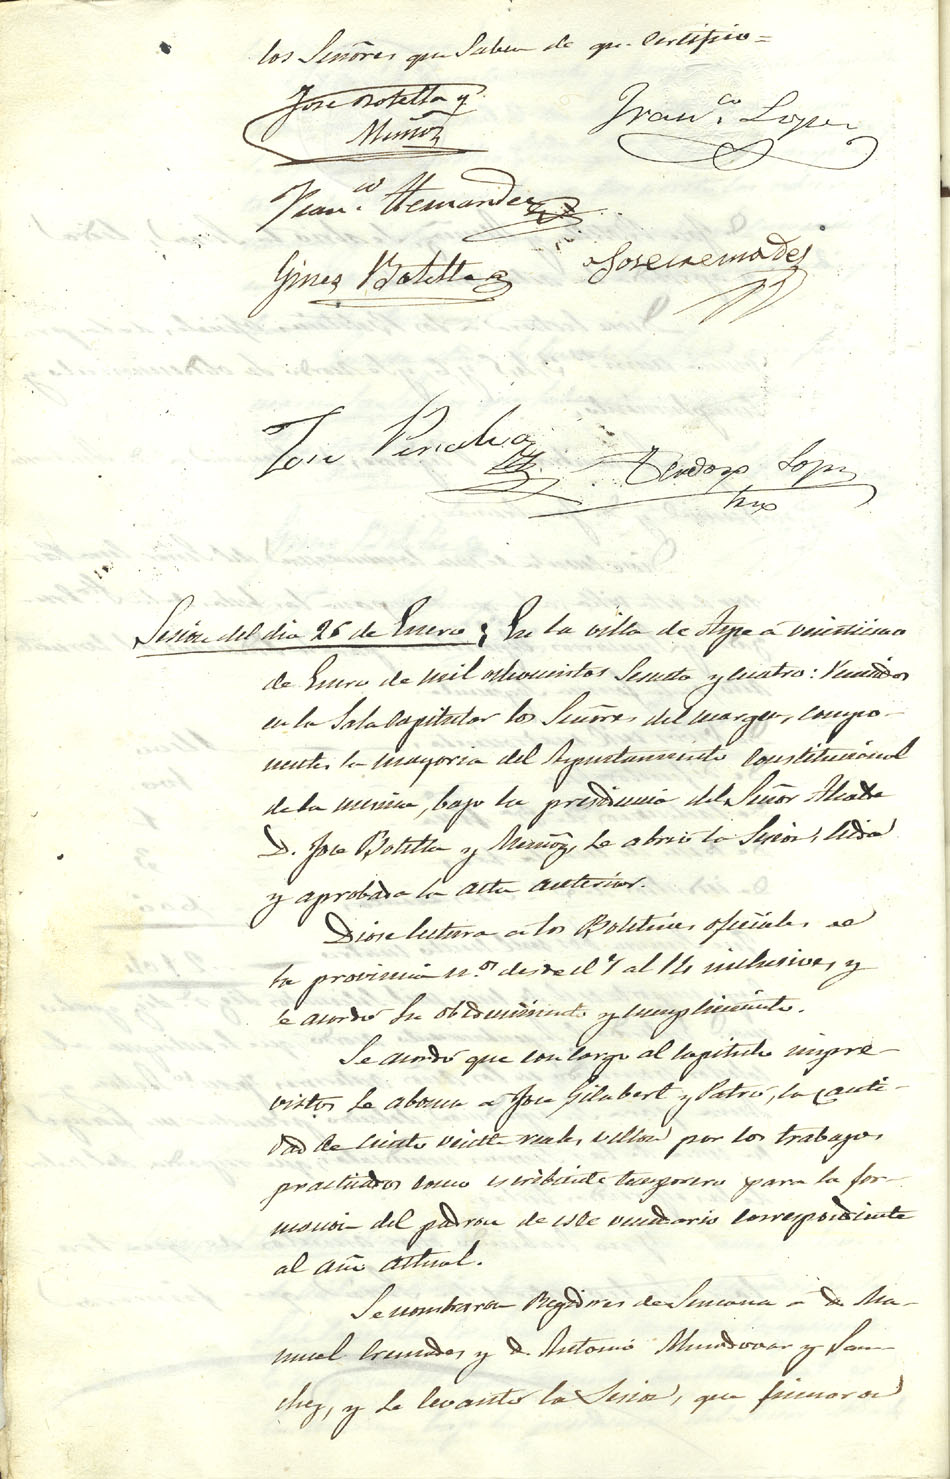 los Señores que Saben de que Certifico=
Jose Botella y
Muñoz
Fran.co Lopez
Fran.co Hernandez
Gines Botella
Jose Cremades
Jose Peralva
Teodoro Lopez
Srio
Sesion del dia 26 de Enero; En la villa de Aspe á veintiseis
de Enero de mil ochocientos sesenta y cuatro: Reunidos
en la Sala Capitular los Señores del margen, compo-
nentes la mayoria del Ayuntamiento Constitucional
de la misma, bajo la presidencia del Señor Alcalde
D. Jose Botella y Muñoz, se abrió la Sesion, leida
y aprobada la acta anterior.
Diose lectura á los Boletines oficiales de
la provincia n.os desde el 7 al 14 inclusives, y
se acordó su obedecimiento y cumplimiento.
Se acordó que con cargo al Capitulo impre-
vistos se abona á Jose Gilabert y Satrú, la canti-
dad de ciento veinte reales vellon por los trabajos
practicados como escribiente temporero para la for-
macion del padron de este vecindario correspondiente
al año actual.
Se nombraron Regidores de Semana á D. Ma-
nuel Cremades y D. Antonio Almodovar y San-
chez, y se levantó la Sesion, que firmaron